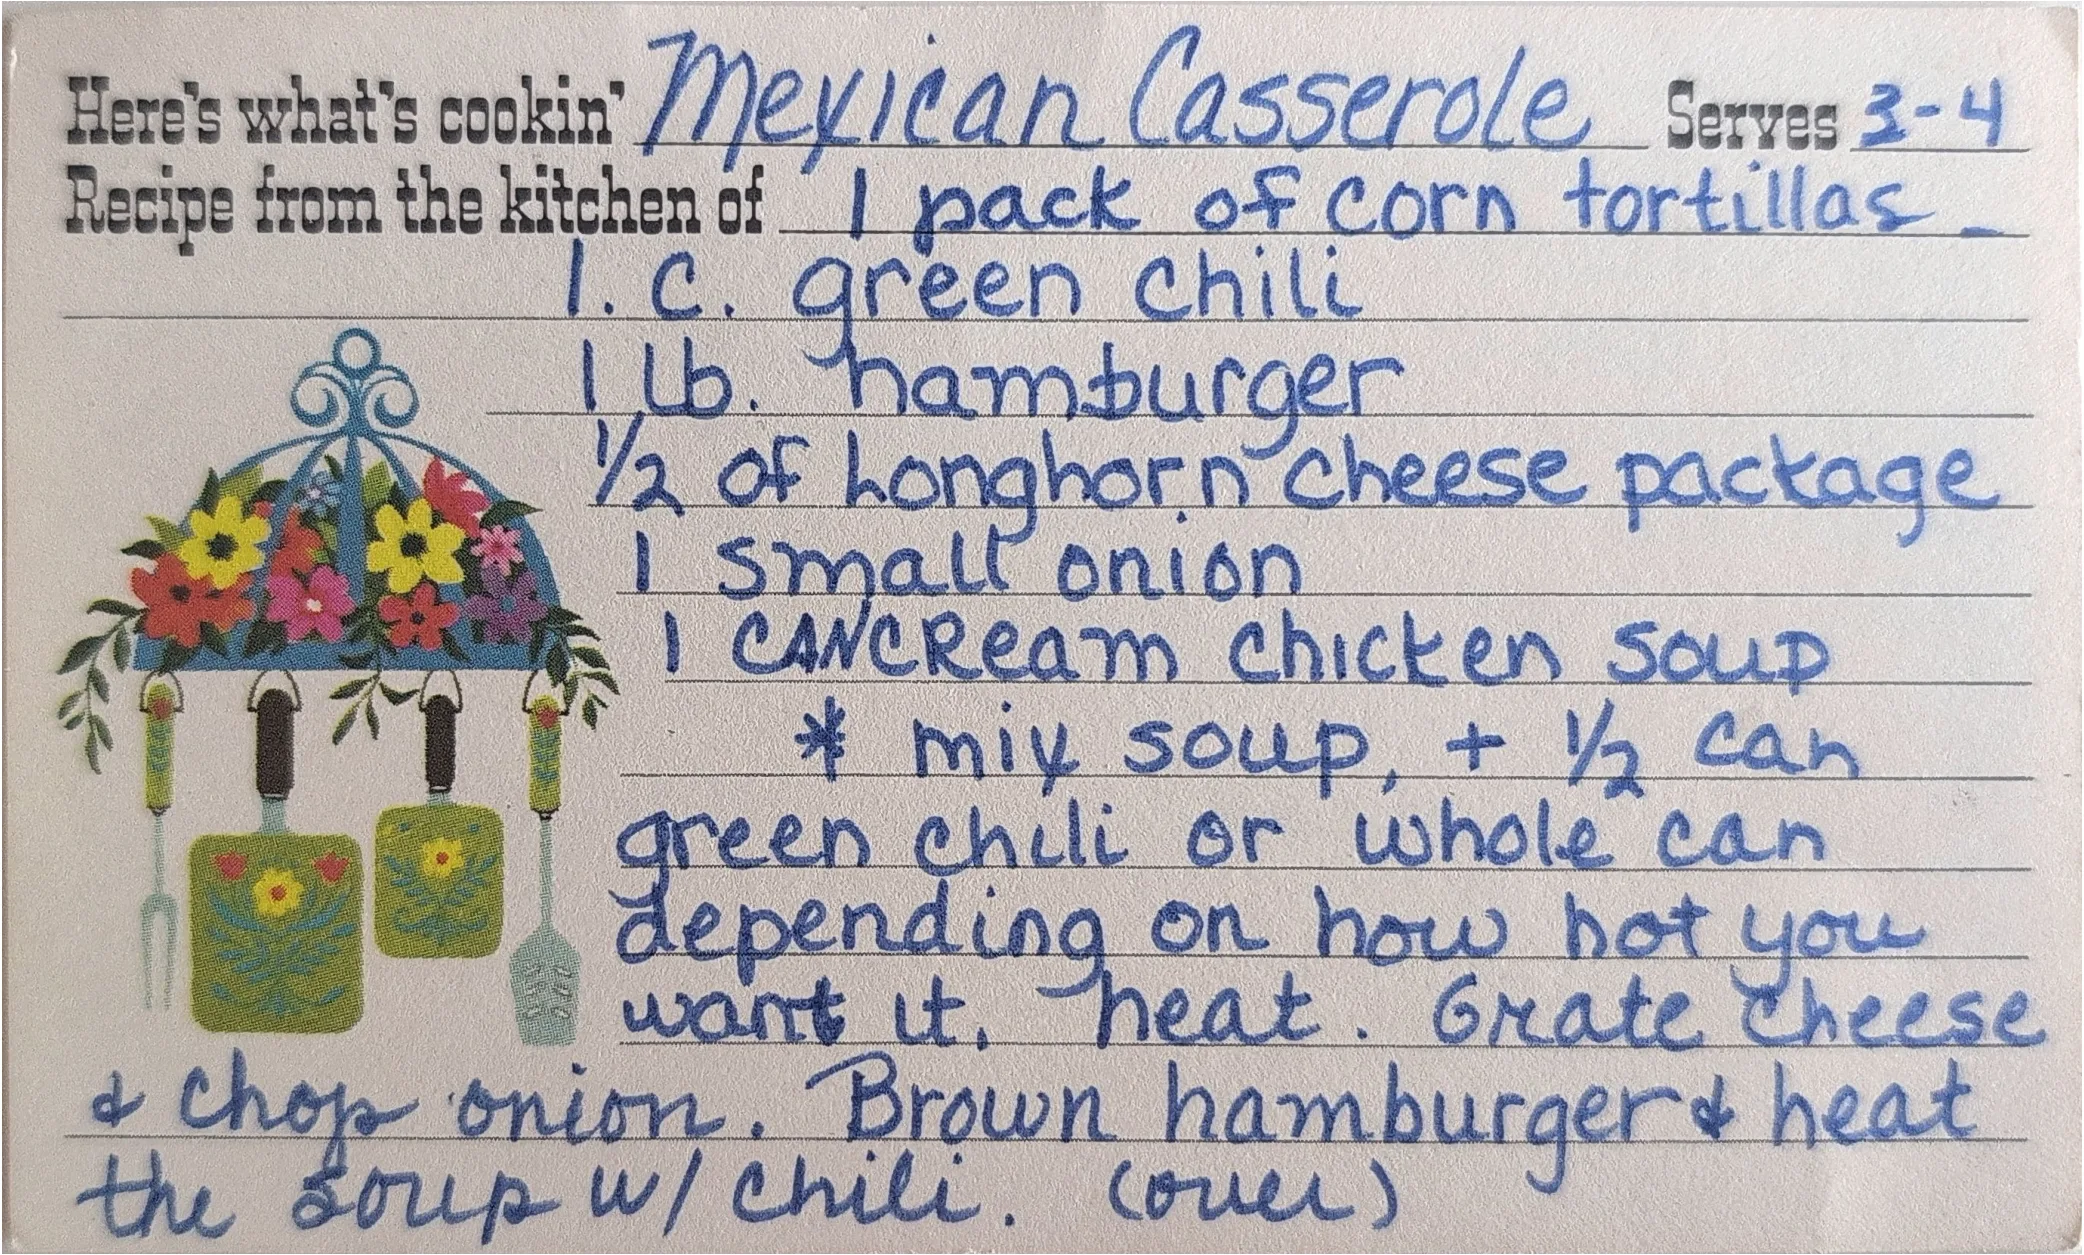 Here's what's cookin' Mexican Casserole Serves 3-4
Recipe from the kitchen of 1 pack of corn tortillas
1. c. green chili
1 lb. hamburger
1/2 of Longhorn cheese package
1 small onion
1 CAN CReam chicken soup
* mix soup, + 1/2 can
green chili or whole can
depending on how hot you
want it. heat. Grate cheese
& chop onion. Brown hamburger & heat
the soup w/ chili. (over)